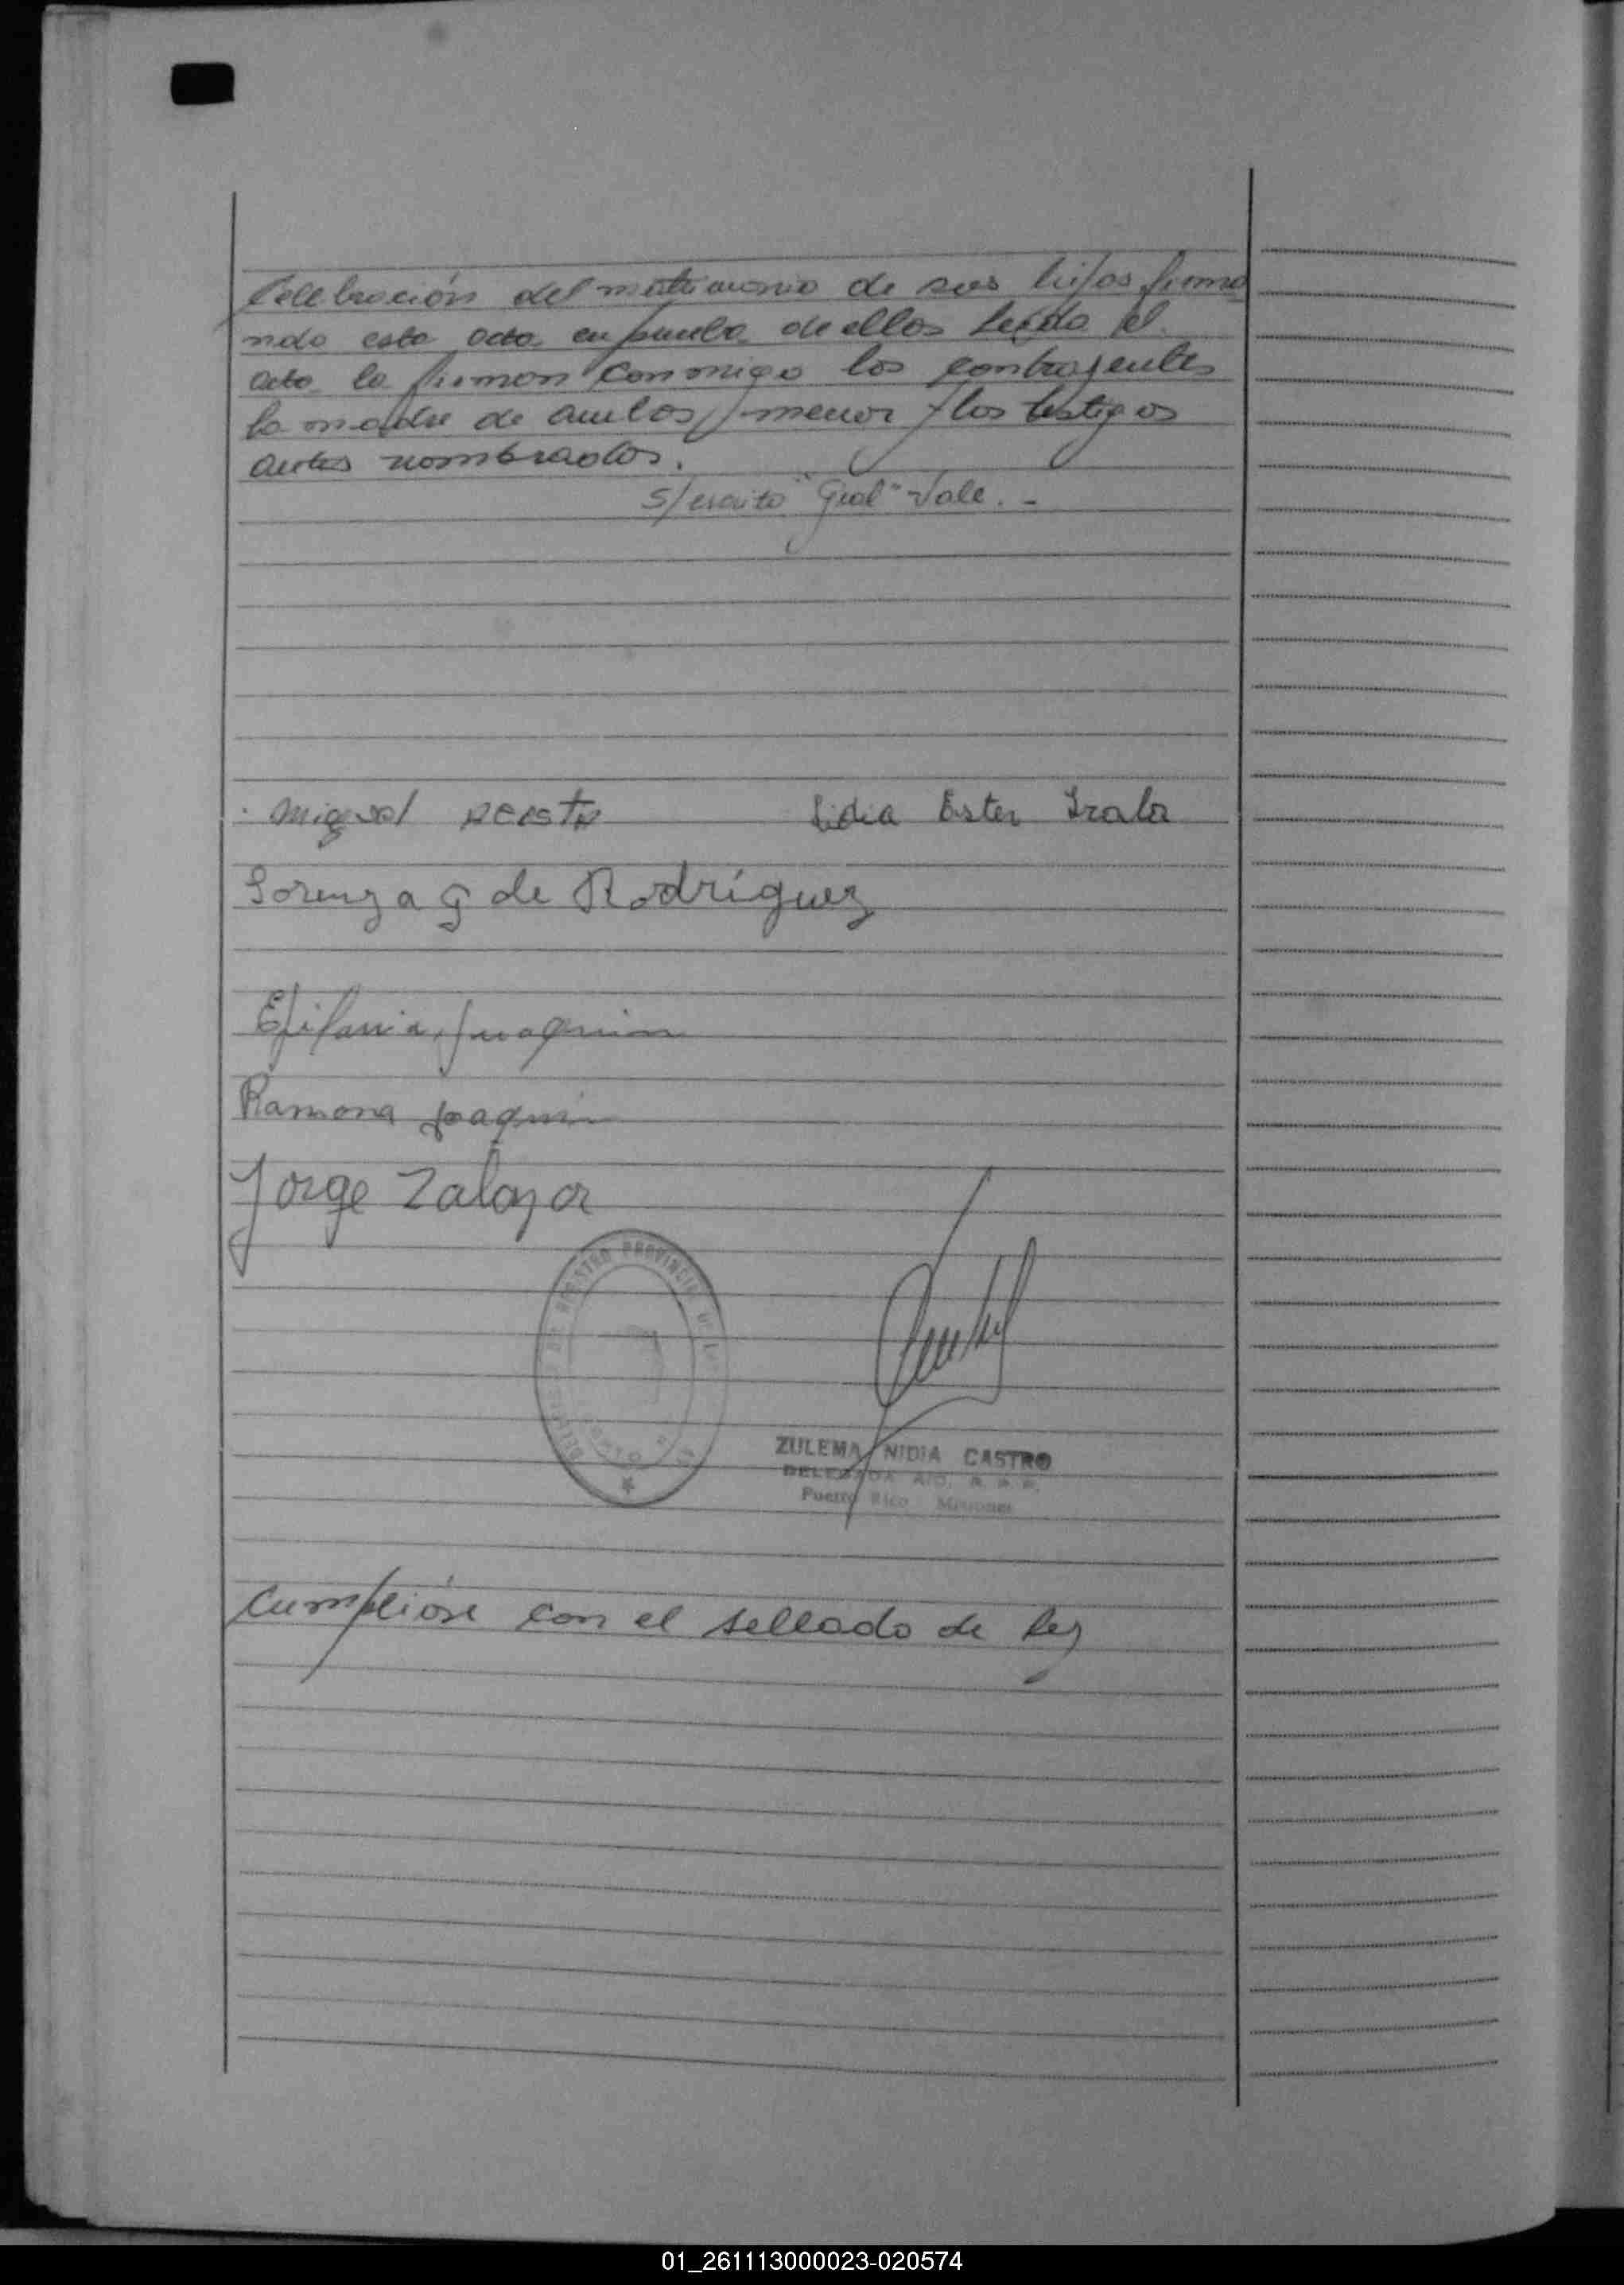 Celebración del matrimonio de sus hijos firma
ndo esta acta en prueba de ellos Leída el
acta la firman conmigo los contrayentes
la madre de ambos menor y los testigos
antes nombrados.
S/escrito "Gral" Vale. -
Miguel Acosta Lidia Ester Irala
Lorenza G de Rodríguez
Epifania Juaquin
Ramona Joaquin
Jorge Zalazar
REGISTRO PROVINCIAL DE LAS
ZULEMA NIDIA CASTRO
DELEGADA A/C. R. P. P.
Puerto Rico Misiones
Cumplióse con el sellado de Ley
01_261113000023-020574